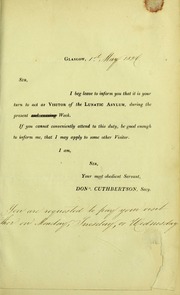 GLASGOW, 1st May 18
SIR,
I beg leave to inform you that it is your
turn to act as VISITOR of the LUNATIC ASYLUM, during the
present Week.
If you cannot conveniently attend to this duty, be good enough
to inform me, that I may apply to some other Visitor.
I am,
SIR,
Your most obedient Servant,
DON. CUTHBERTSON, Secy.
You are requested to pay your visit
on Monday, Tuesday, or Wednesday